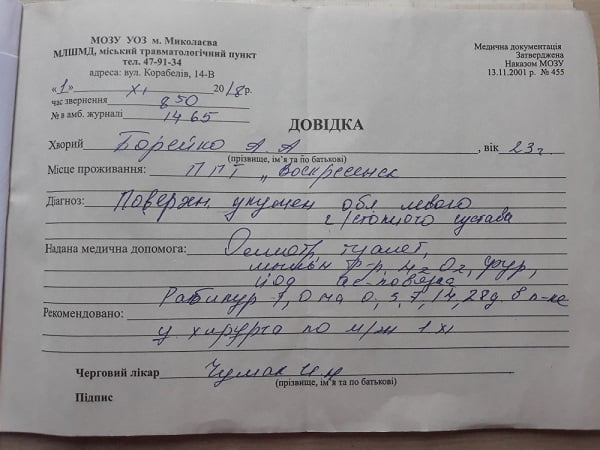 МОЗУ УОЗ м. Миколаєва
МЛШМД, міський травматологічний пункт
тел. 47-91-34
адреса: вул. Корабелів, 14-В
Медична документація
Затверджена
Наказом МОЗУ
13.11.2001 р. № 455
«1» XI 2018 р.
час звернення 8 50
№ в амб. журналі 1465
ДОВІДКА
Хворий Борейко А. А , вік 23 г.
(прізвище, ім'я та по батькові)
Місце проживання: ПГТ „ Воскресенск
Діагноз: Поверхн. укушен обл левого
г/стопного сустава
Надана медична допомога: Осмотр, туалет,
мыльн р-р, H2O2, фур,
йод ас-повязка
Рабипур 1,0 на 0, 3, 7, 14, 28 д. в п-ке
Рекомендовано:
у хирурга по м/ж 1 XI
Черговий лікар Чумак И.Н
(прізвище, ім'я та по батькові)
Підпис